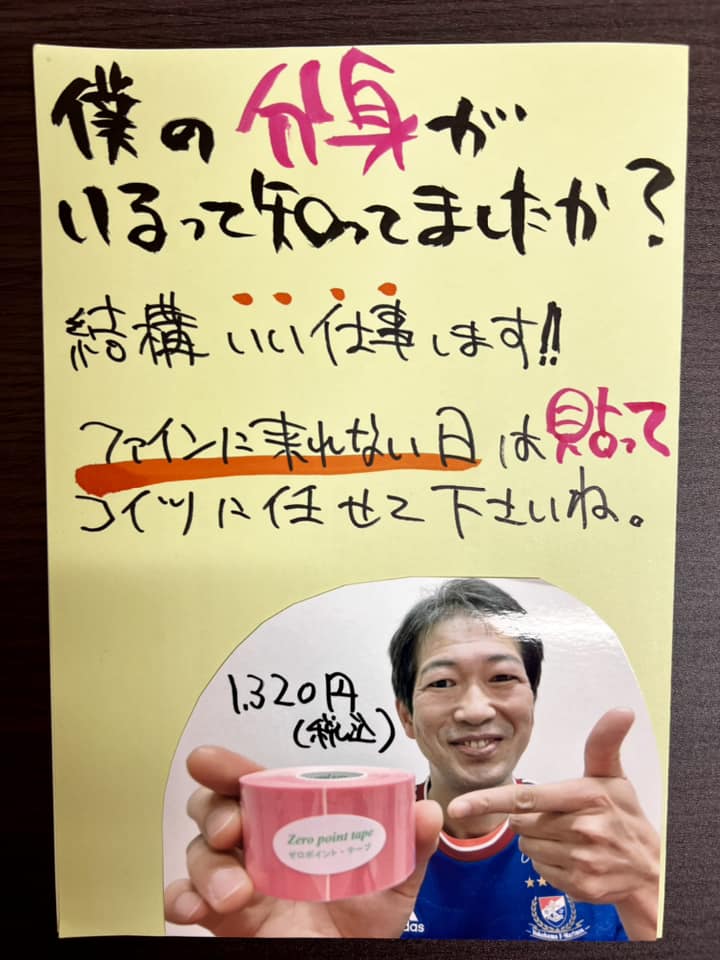 僕の分身が
いるって知ってましたか?
結構いい仕事します!!
ファインに来れない日は貼って
コイツに任せて下さいね。
1.320円
(税込)
Zero point tape
ゼロポイント・テープ
adidas
Yokohama F·Marinos